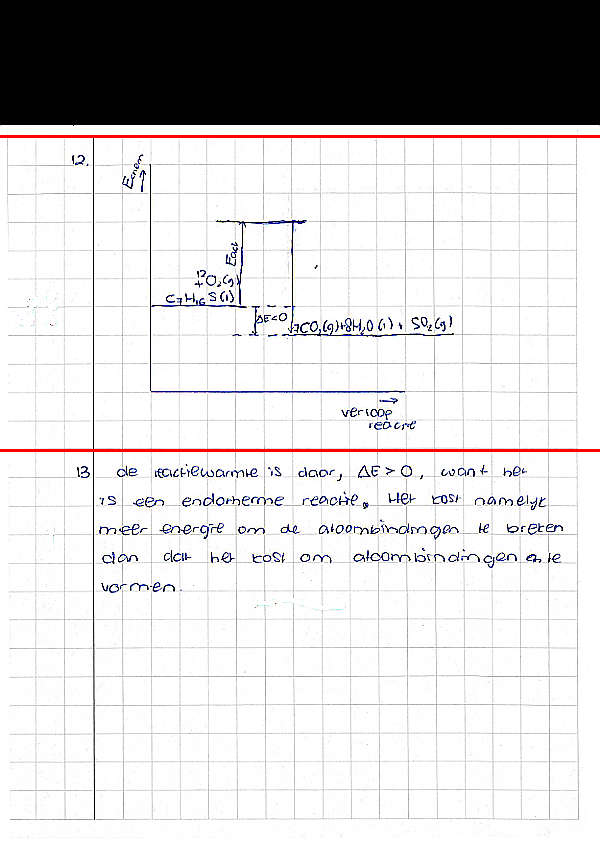 12.
Echem
Eact
12
+ O₂(g)
C₇H₁₆S(l)
ΔE<0
7CO₂(g)+8H₂O(l) + SO₂(g)
verloop
reactie
13 de reactiewarmte is daar, ΔE > 0, want het
is een endotherme reactie. Het kost namelijk
meer energie om de atoombindingen te breken
dan dat het kost om atoombindingen te
vormen.